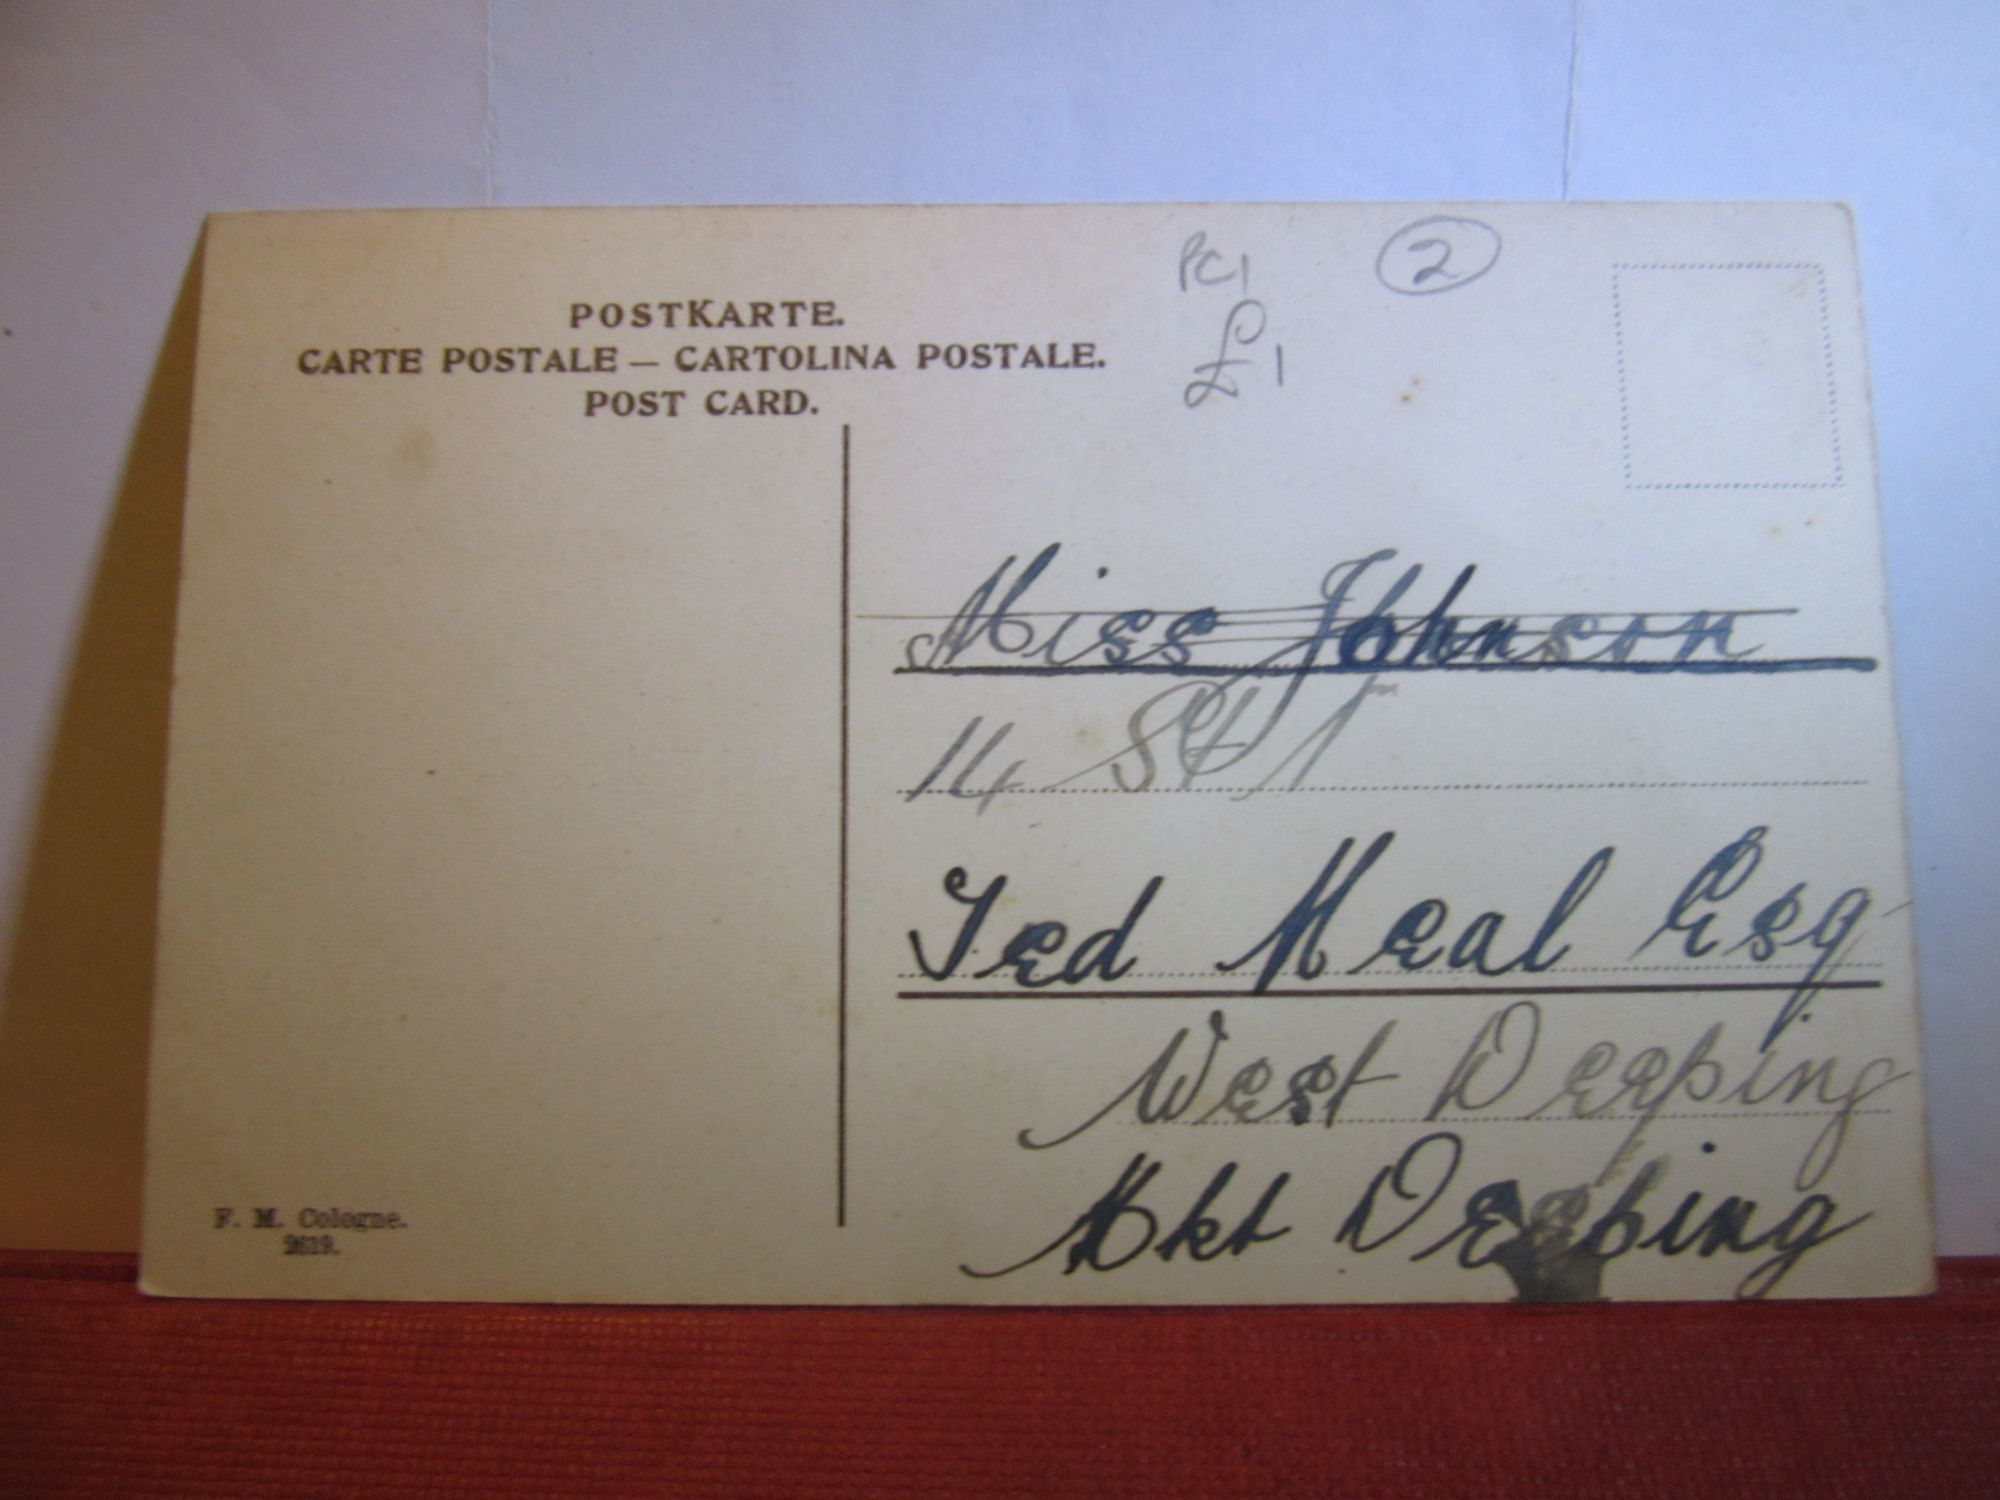 PC1
2
£1
POSTKARTE.
CARTE POSTALE — CARTOLINA POSTALE.
POST CARD.
Miss Johnson
14 St
Ted Meal Esq
West Deeping
Mkt Deeping
F. M. Cologne.
2619.